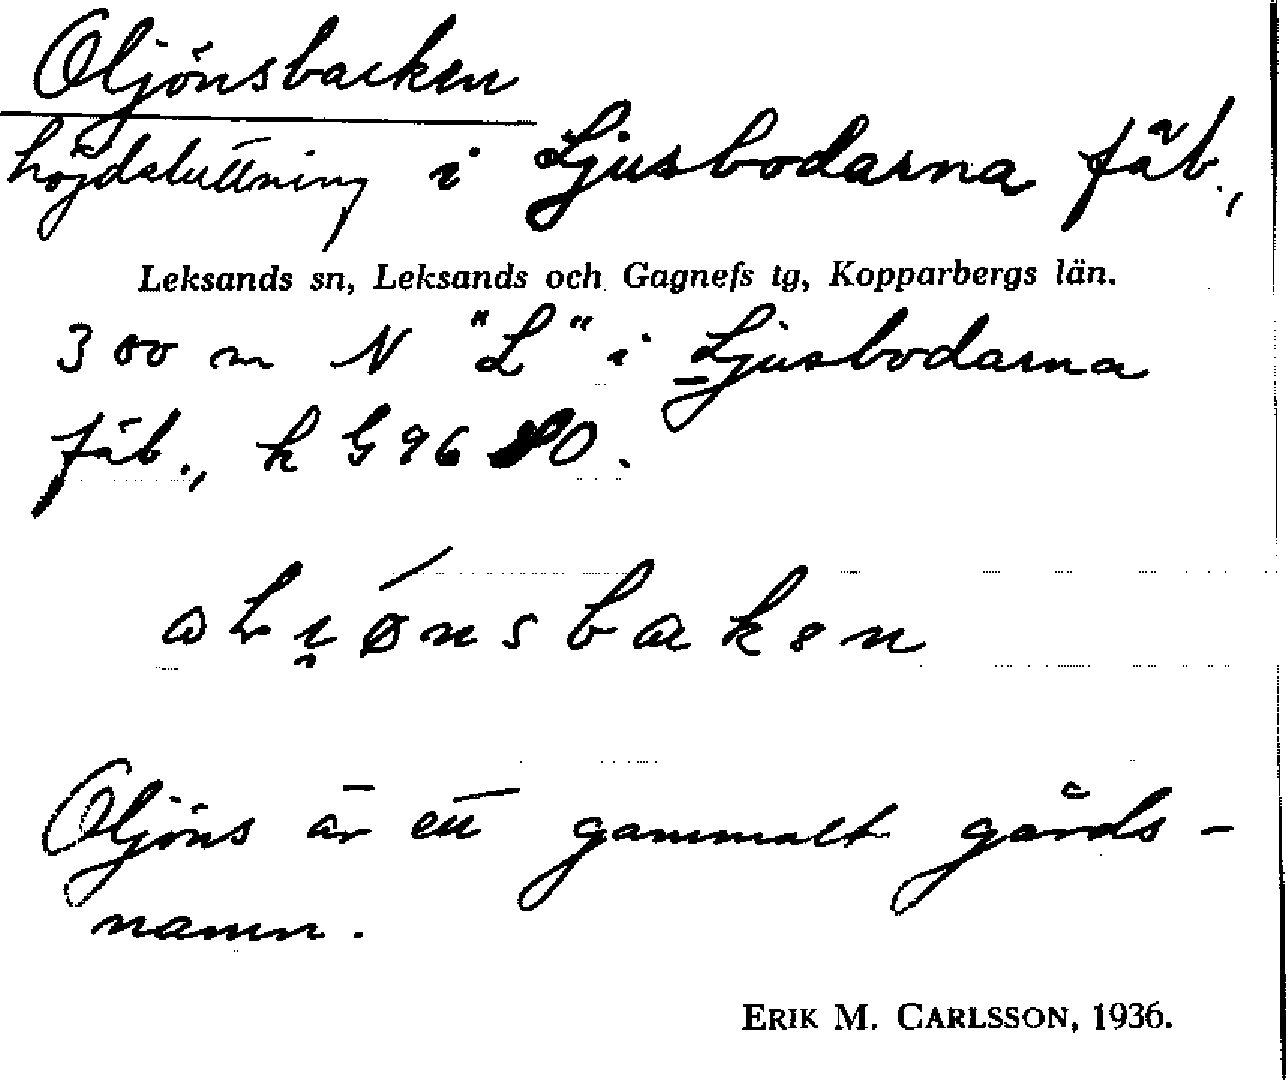 Oljönsbacken
höjdsluttning i Ljusbodarna fäb.,
Leksands sn, Leksands och Gagnefs tg, Kopparbergs län.
300 m N "L" i Ljusbodarna
fäb., k G 96
Oljöns är ett gammalt gårds-
namn.
ERIK M. CARLSSON, 1936.